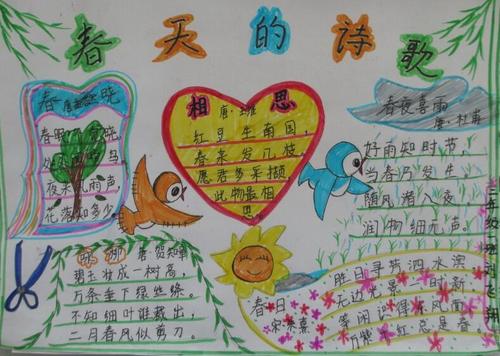 春天的诗歌
春晓
春眠不觉晓,
处处闻啼鸟,
夜来风雨声,
花落知多少。
相思
唐·王维
红豆生南国,
春来发几枝。
愿君多采撷
此物最相
思
春夜喜雨
唐·杜甫
好雨知时节,
当春乃发生。
随风潜入夜
润物细无声。
咏柳 唐·贺知章
碧玉妆成一树高,
万条垂下绿丝绦。
不知细叶谁裁出,
二月春风似剪刀。
春日
宋·朱熹
胜日寻芳泗水滨
无边光景一时新
等闲识得东风面
万紫千红总是春